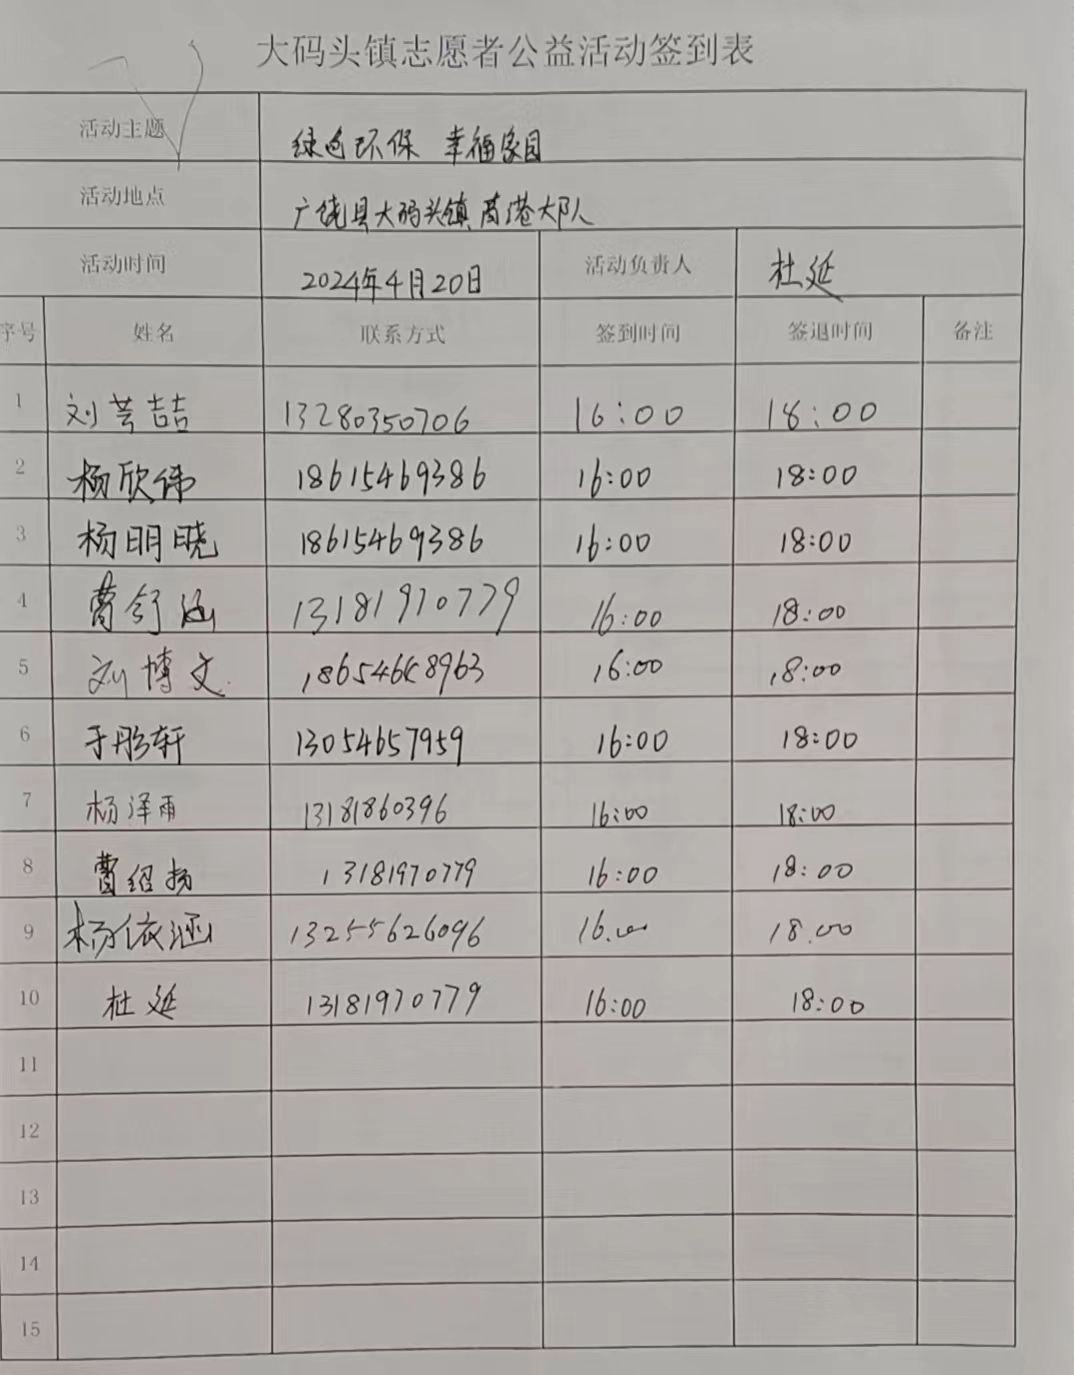 大码头镇志愿者公益活动签到表
活动主题 绿色环保 幸福家园
活动地点 广饶县大码头镇 大队
活动时间 2024年4月20日 活动负责人 杜延
序号 姓名 联系方式 签到时间 签退时间 备注
1 刘芸喆 13280350706 16:00 18:00
2 杨欣伟 18615469386 16:00 18:00
3 杨明晓 18615469386 16:00 18:00
4 曹舒涵 13181970779 16:00 18:00
5 刘博文 16:00 18:00
6 于彤轩 13054657959 16:00 18:00
7 杨泽雨 13181860396 16:00 18:00
8 曹绍扬 13181970779 16:00 18:00
9 杨依涵 13255626096 16.00 18.00
10 杜延 13181970779 16:00 18:00
11
12
13
14
15